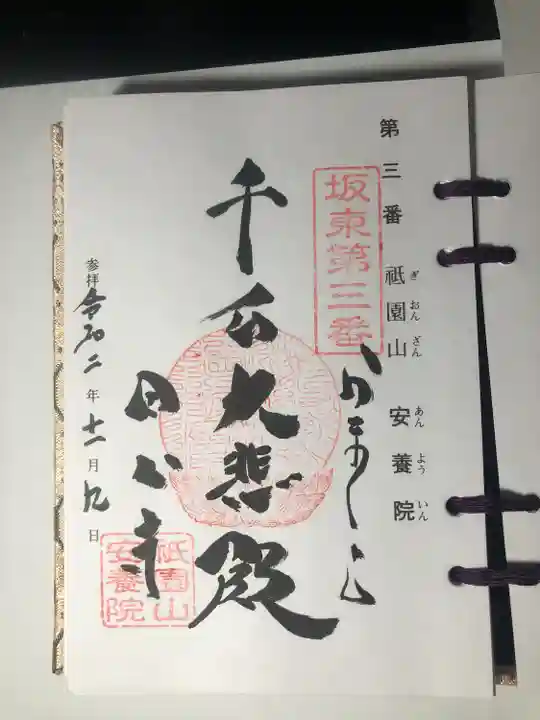 第三番 祇園山 安養院
ぎ おん ざん あん よう いん
坂東第三番
かまくら
千手大悲殿
田代寺
祇園山
安養院
参拝 令和二年十一月九日